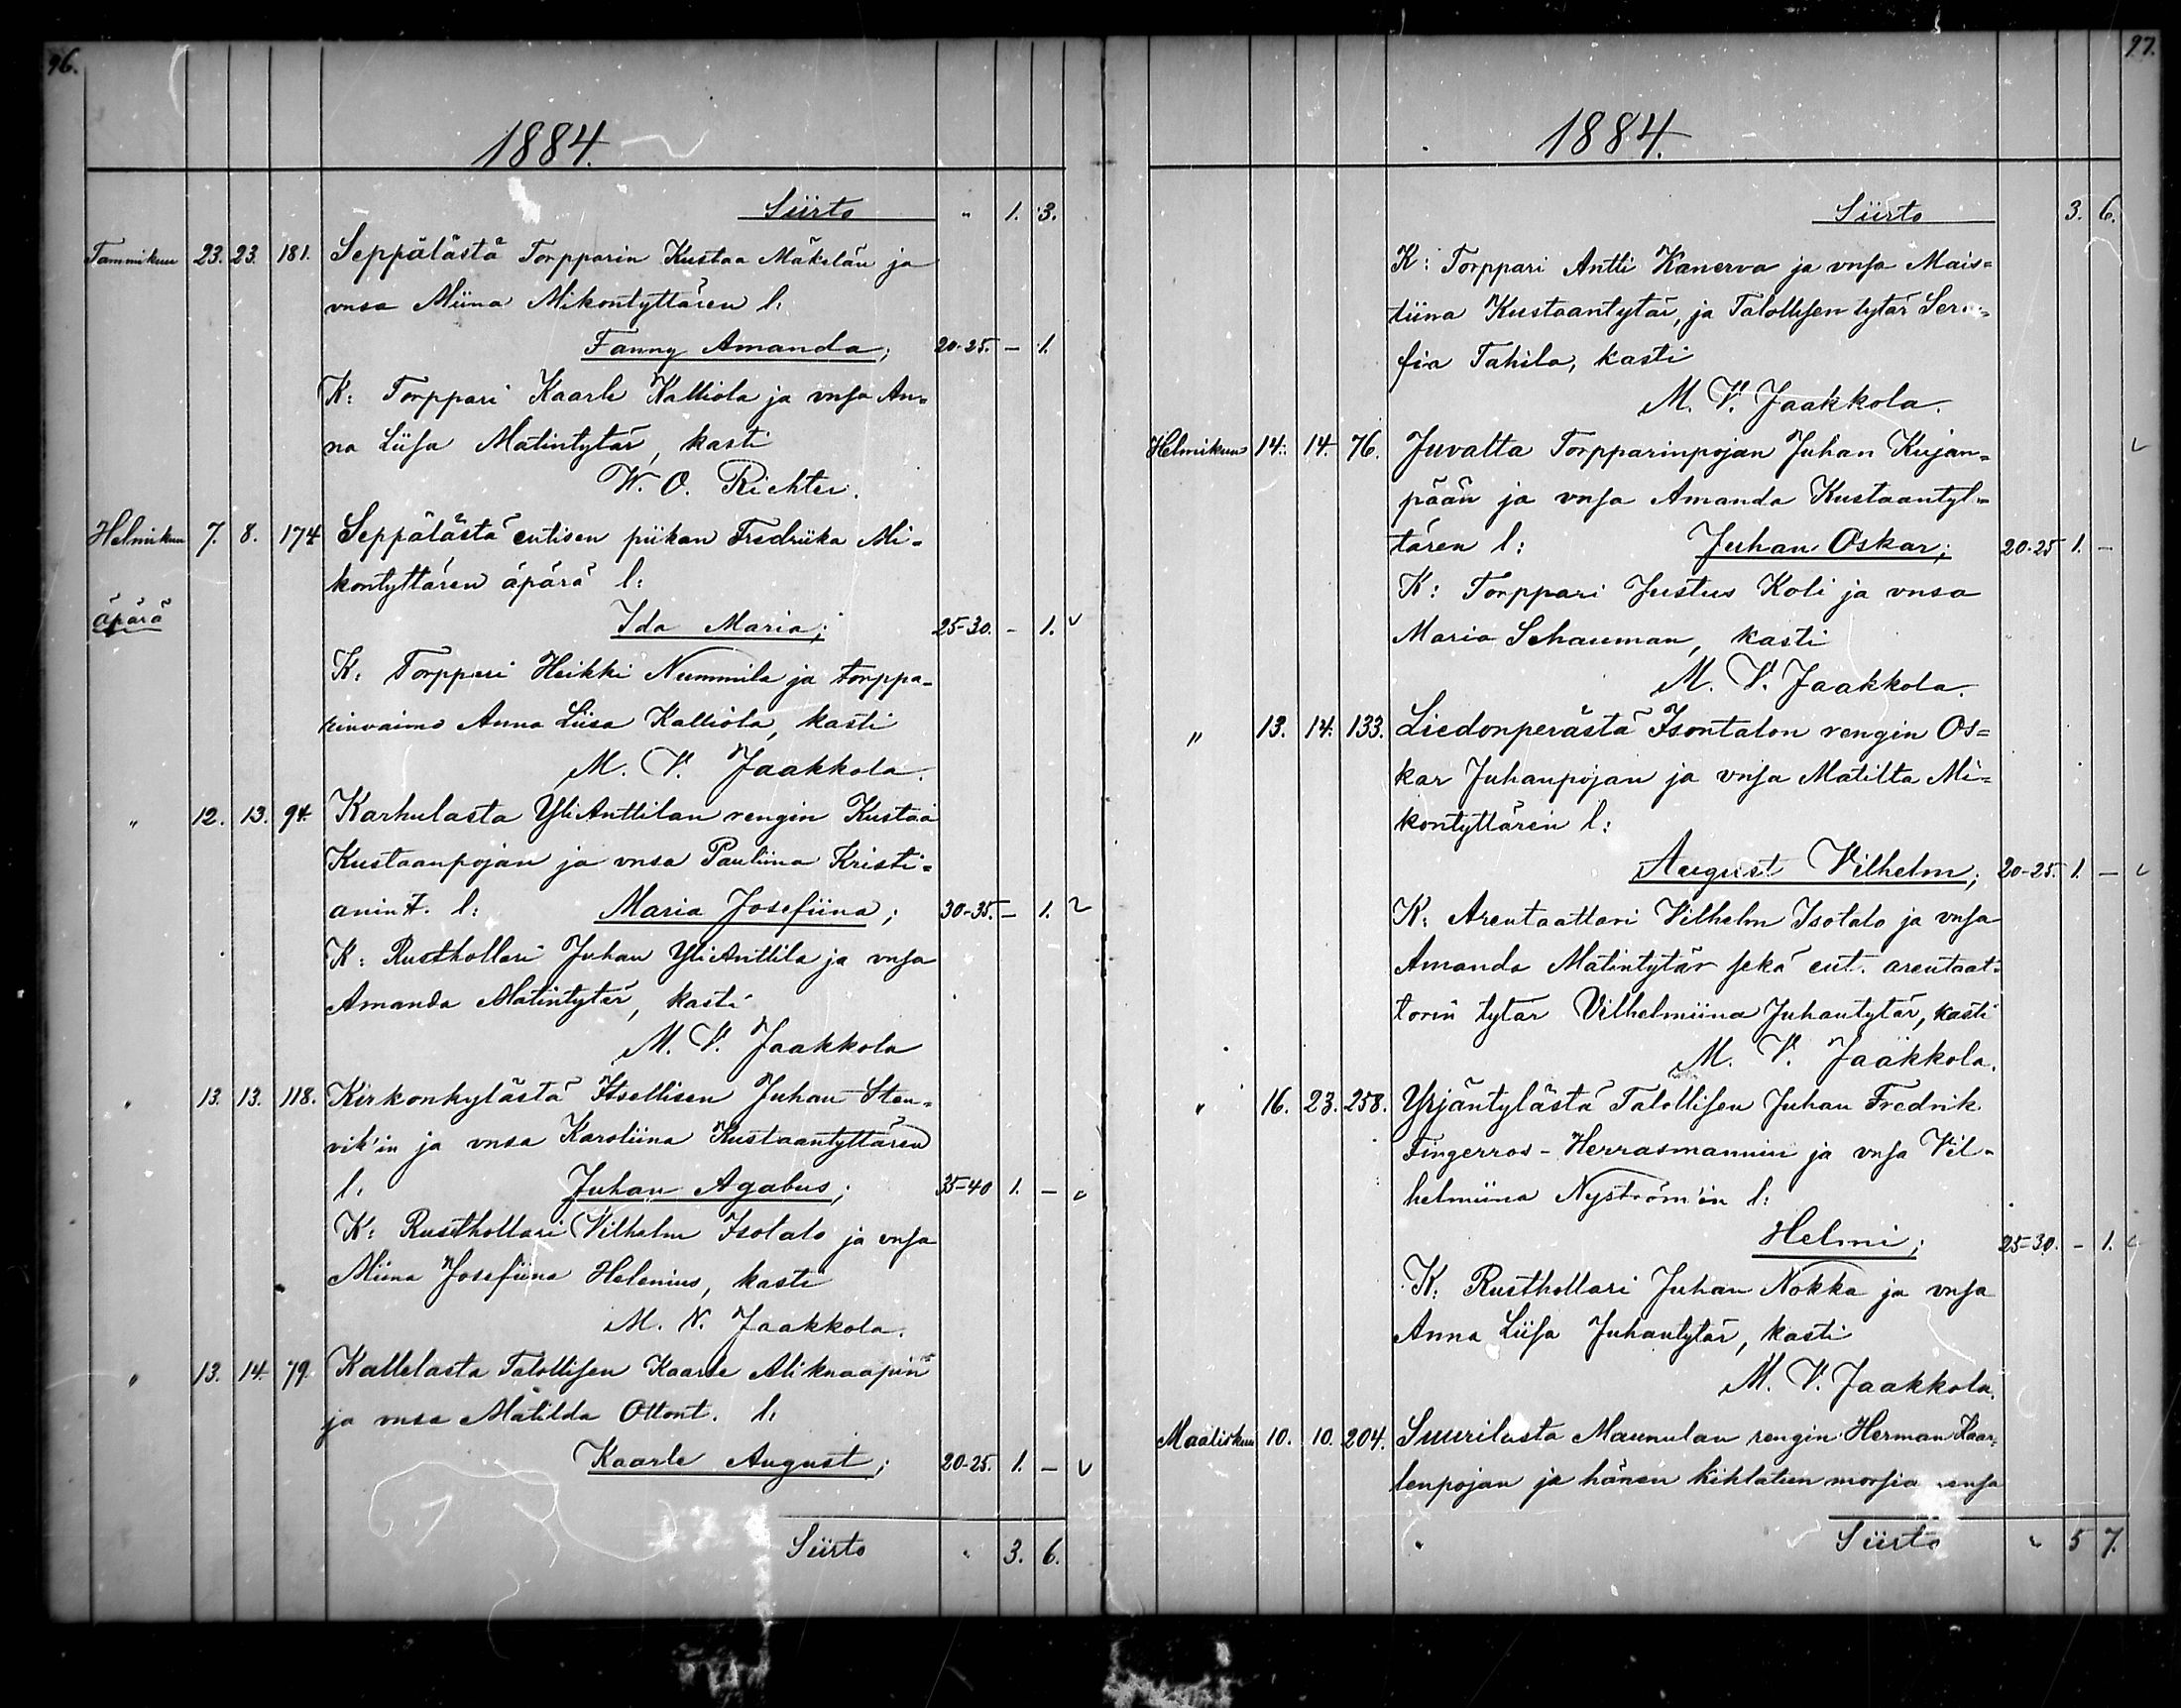 96.
1884.
Siirto " 1. 3.
Tammikuu 23. 23. 181. Seppälästä Torpparin Kustaa Mäkelän ja
vnsa Miina Mikontyttären l:
Fanny Amanda; 20-25. – 1.
K: Torppari Kaarle Kalliola ja vnsa An=
na Liisa Matintytär, kasti
W. O. Richter.
Helmikuu 7. 8. 174 Seppälästä entisen piikan Fredriika Mi=
kontyttären äpärä l:
äpärä Ida Maria; 25-30. – 1.
K: Torppari Heikki Nummila ja torppa=
rinvaimo Anna Liisa Kalliola, kasti
M. V. Jaakkola.
" 12. 13. 94. Karhulasta YliAnttilan rengin Kustaa
Kustaanpojan ja vnsa Pauliina Kristi=
anin t. l: Maria Josefiina; 30-35. – 1.
K: Rusthollari Juhan YliAnttila ja vnsa
Amanda Matintytär, kasti
M. V. Jaakkola
" 13. 13. 118. Kirkonkylästä Itsellisen Juhan Sten=
vik'in ja vnsa Karoliina Kustaantyttären
l: Juhan Agabus; 35-40 1. –
K: Rusthollari Vilhelm Isotalo ja vnsa
Miina Josefiina Helenius, kasti
M. V. Jaakkola.
" 13. 14. 79. Kallelasta Talollisen Kaarle Aliknaapin
ja vnsa Matilda Ottont. l:
Kaarle August; 20-25. 1. –
Siirto " 3. 6.
97.
1884.
Siirto 3. 6.
K: Torppari Antti Kanerva ja vnsa Mais=
tiina Kustaantytär, ja Talollisen tytär
fia Tahila, kasti
M. V. Jaakkola.
Helmikuu 14. 14. 76. Juvalta Torpparinpojan Juhan Kujan=
pään ja vnsa Amanda Kustaantyt=
tären l: Juhan Oskar; 20-25 1. –
K: Torppari Justus Koli ja vnsa
Maria Schauman, kasti
M. V. Jaakkola.
" 13. 14. 133. Liedonperästä Isontalon rengin Os=
kar Juhanpojan ja vnsa Matilta Mi=
kontyttären l:
August Vilhelm; 20-25. 1. –
K: Arentaattori Vilhelm Isotalo ja vnsa
Amanda Matintytär sekä ent. arentaat=
torin tytär Vilhelmiina Juhantytär, kasti
M. V. Jaakkola.
" 16. 23. 258. Yrjäntylästä Talollisen Juhan Fredrik
Fingerroos-Herrasmannin ja vnsa Vil=
helmiina Nyström'in l:
Helmi; 25-30. – 1.
K: Rusthollari Juhan Nokka ja vnsa
Anna Liisa Juhantytär, kasti
M. V. Jaakkola.
Maaliskuu 10. 10. 204. Suurilasta Maunulan rengin Herman Kaar=
lenpojan ja hänen kihlatun morsia mensa
Siirto " 5 7.